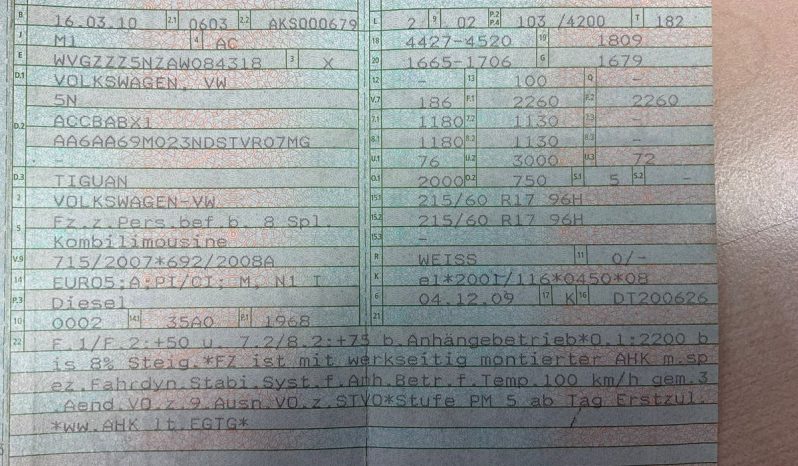 B 16.03.10 2.1 0603 2.2 AKS000679
J M1 4 AC
E WVGZZZ5NZAW084318 3 X
D.1 VOLKSWAGEN, VW
5N
D.2 ACCBABX1
AA6AA69M023NDSTVR07MG
-
D.3 TIGUAN
2 VOLKSWAGEN-VW
5 Fz.z.Pers.bef.b. 8 Spl.
Kombilimousine
V.9 715/2007*692/2008A
14 EURO5;A;PI/CI; M, N1 I
P.3 Diesel
10 0002 14.1 35A0 P.1 1968
L 2 9 02 P.2 P.4 103 /4200 T 182
18 4427-4520 19 1809
20 1665-1706 G 1679
12 - 13 100 Q -
V.7 186 F.1 2260 F.2 2260
7.1 1180 7.2 1130 7.3 -
8.1 1180 8.2 1130 8.3 -
U.1 76 U.2 3000 U.3 72
O.1 2000 O.2 750 S.1 5 S.2 -
15.1 215/60 R17 96H
15.2 215/60 R17 96H
15.3 -
R WEISS 11 0/-
K e1*2001/116*0450*08
6 04.12.09 17 K 16 DT200626
21
22 F.1/F.2:+50 u. 7.2/8.2:+75 b.Anhängebetrieb*O.1:2200 b
is 8% Steig.*FZ ist mit werkseitig montierter AHK m.sp
ez.Fahrdyn.Stabi.Syst.f.Anh.Betr.f.Temp.100 km/h gem.3
.Aend.VO.z.9.Ausn.VO.z.STVO*Stufe PM 5 ab Tag Erstzul.
*ww.AHK lt.EGTG*